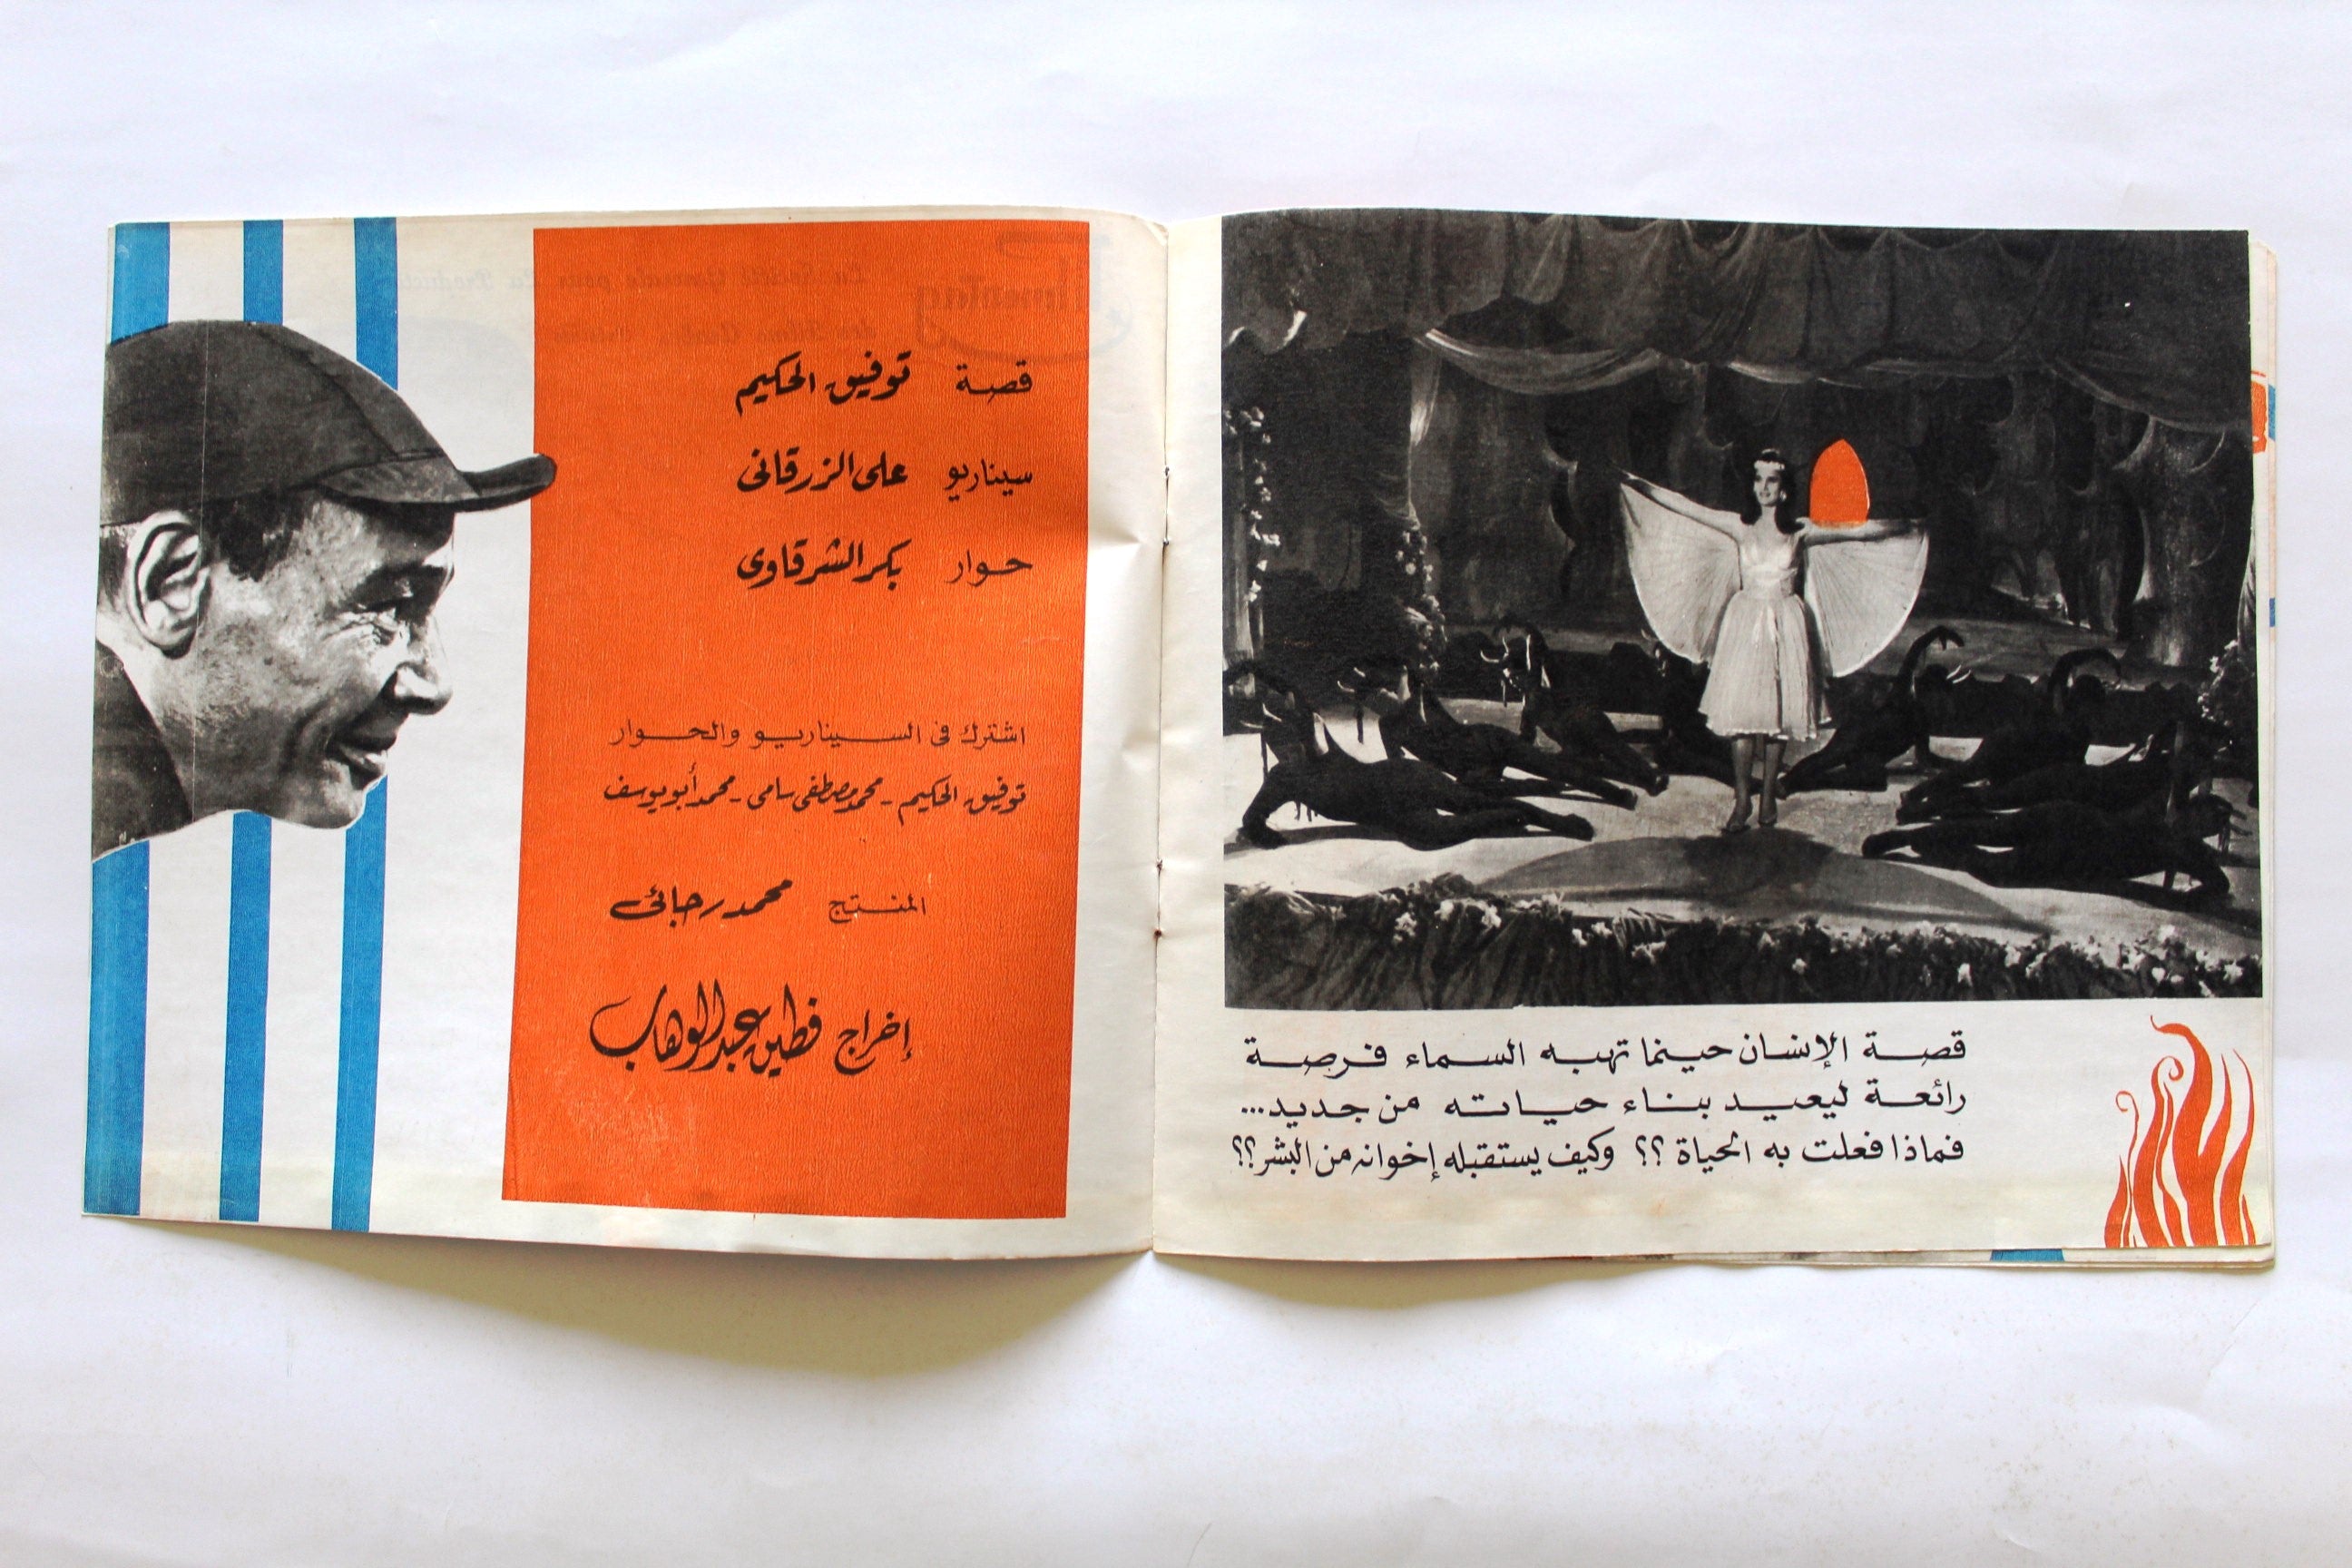 قصة توفيق الحكيم
سيناريو على الزرقانى
حوار بكر الشرقاوى
اشترك فى السيناريو والحوار
توفيق الحكيم - محمد مصطفى سامى - محمد أبو يوسف
المنتج محمد رجائى
إخراج فطين عبد الوهاب
قصة الإنسان حينما تهبه السماء فرصة
رائعة ليعيد بناء حياته من جديد...
فماذا فعلت به الحياة ؟؟ وكيف يستقبله إخوانه من البشر ؟؟